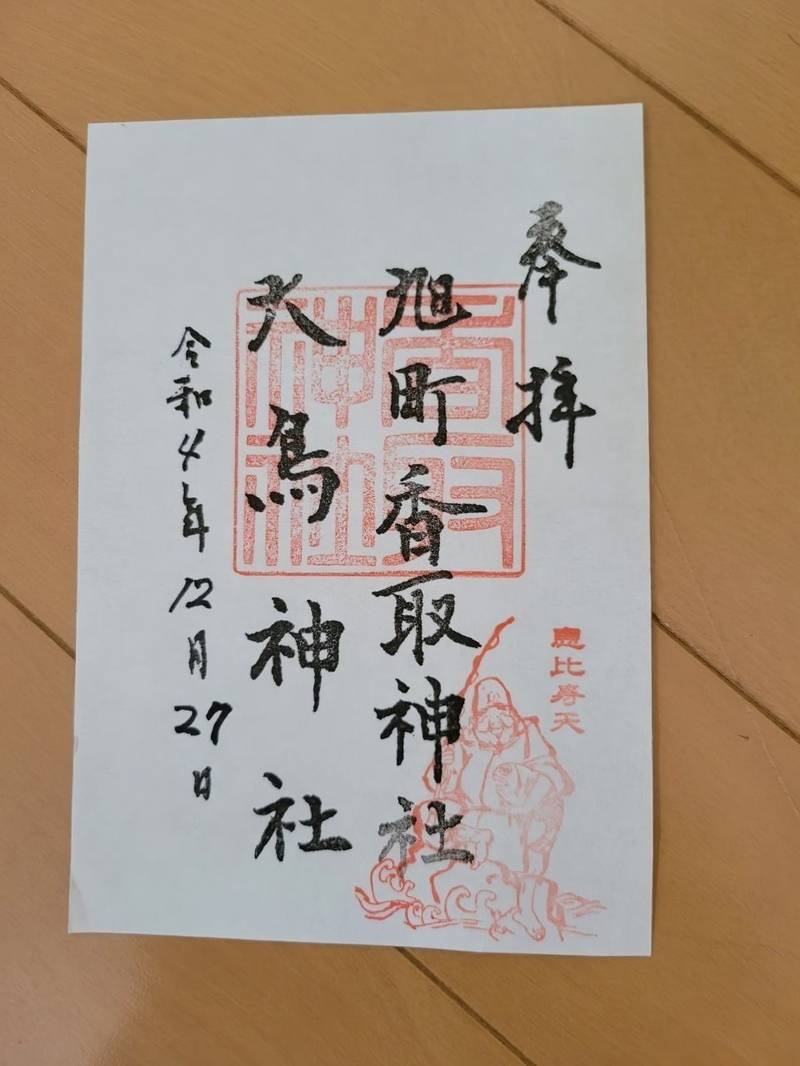 奉拝
旭町香取神社
大鳥神社
令和4年12月27日
香取
神社
恵比寿天